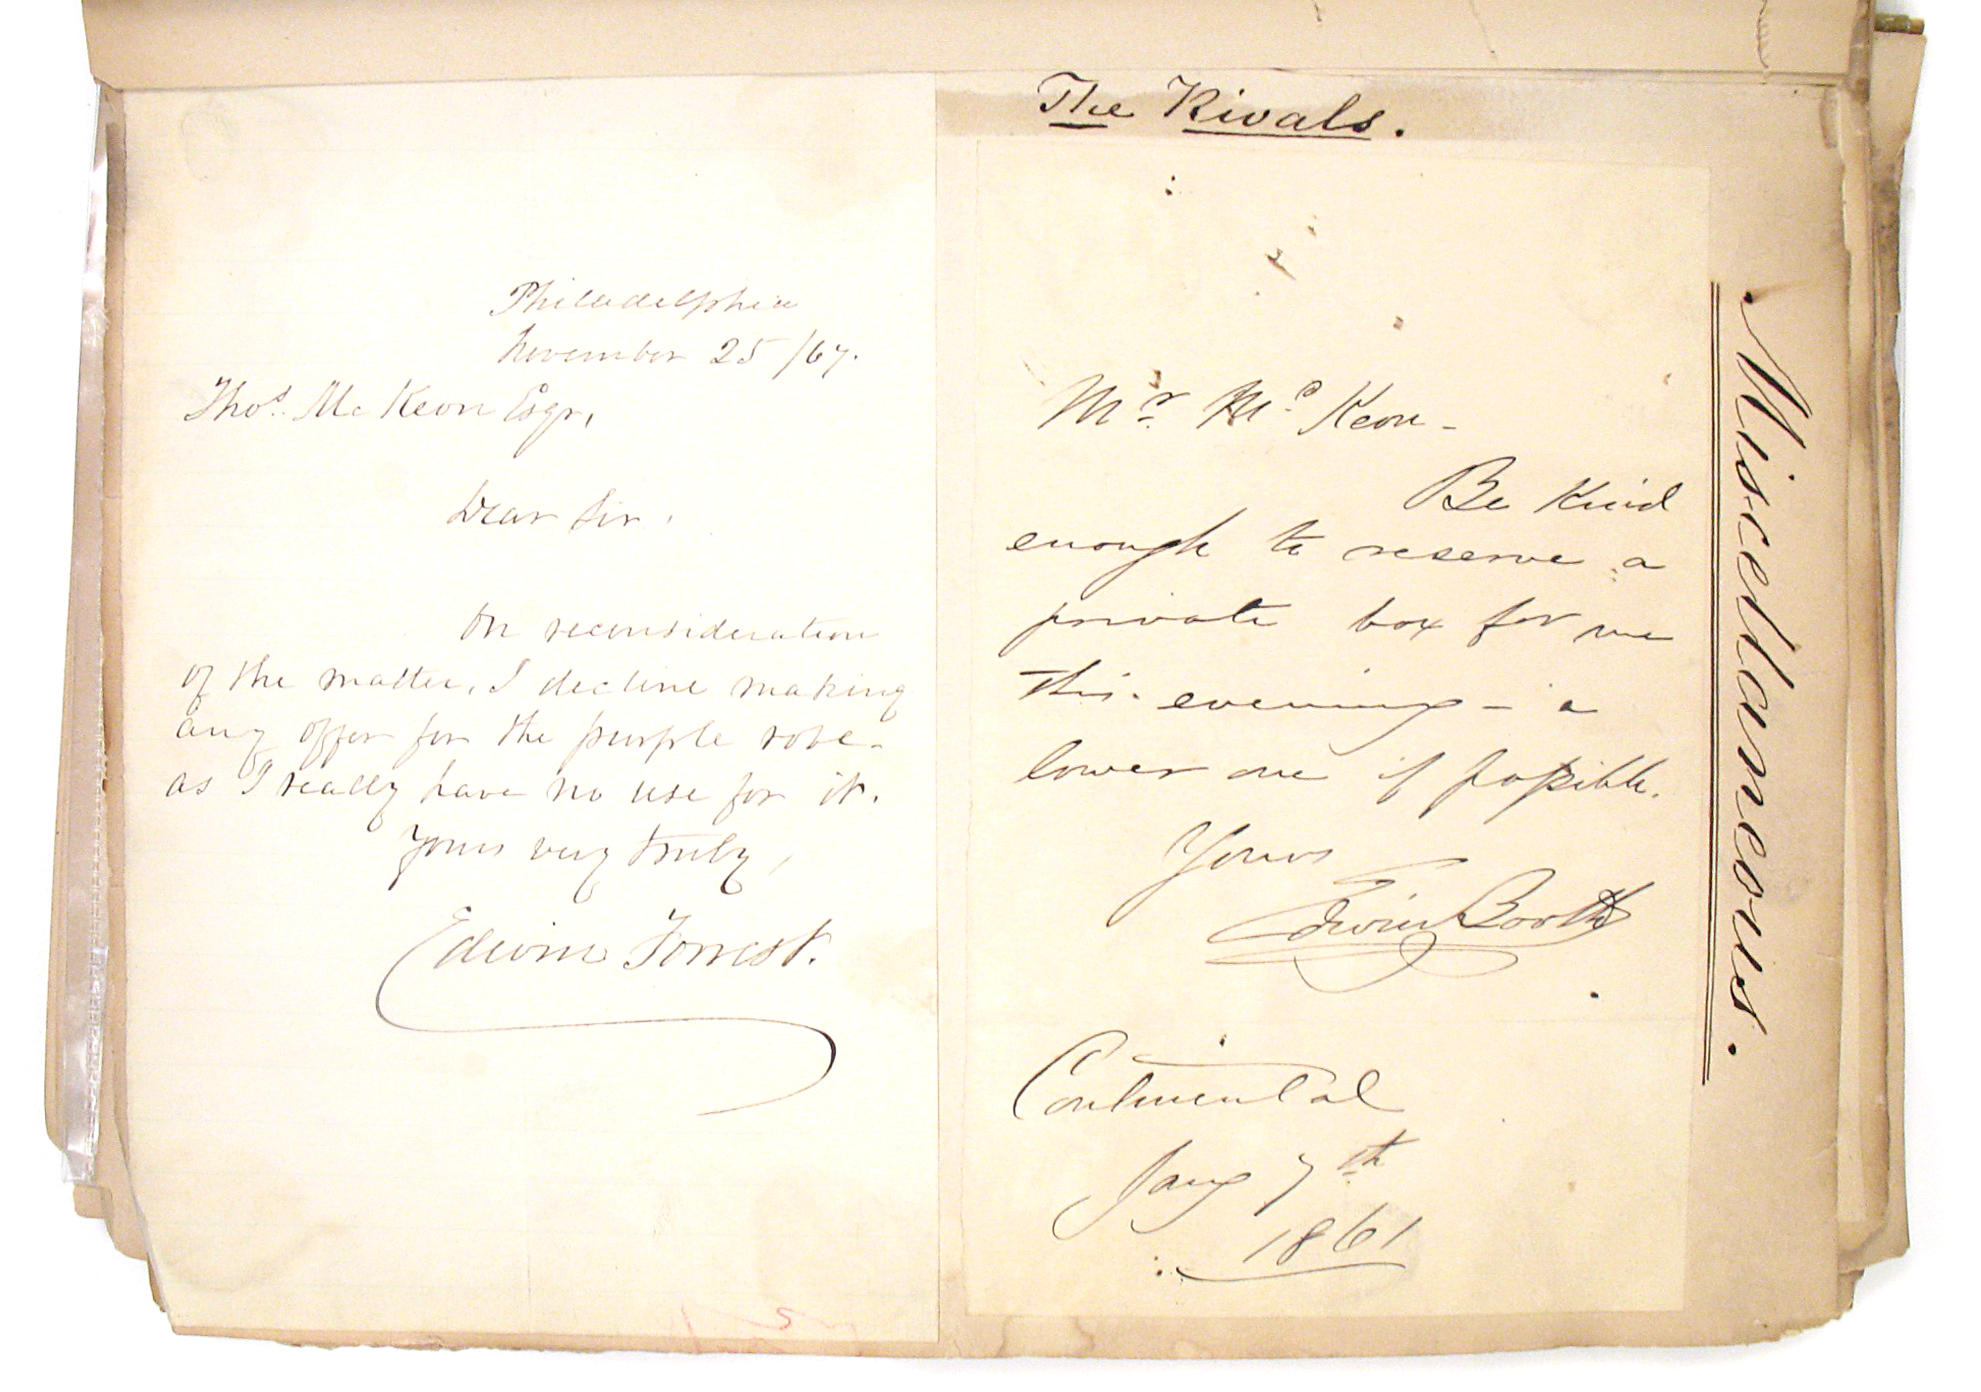 Philadelphia
November 25/67.
Thos. Mc Keon Esqr,
Dear Sir,
On reconsideration
of the matter, I decline making
any offer for the purple robe-
as I really have no use for it.
Yours very truly,
Edwin Forrest.
The Rivals.
Mr. Mc. Keon -
Be Kind
enough to reserve a
private box for me
this evening - a
lower one if possible.
Yours
Edwin Booth
Continental
Jany 7th
1861
Miscellaneous.